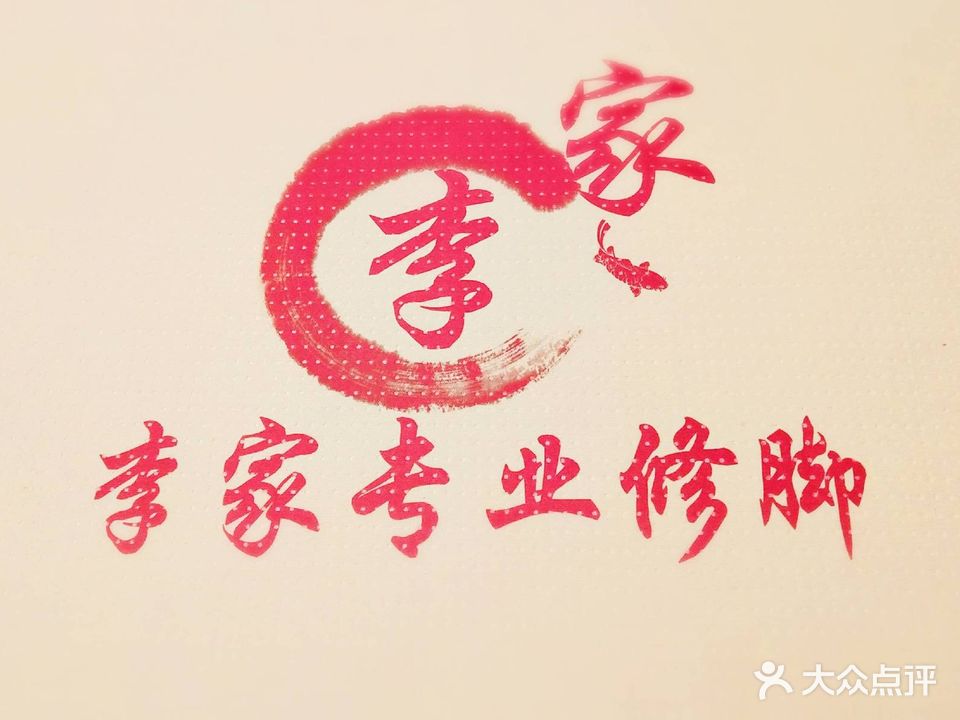 家
李
李家专业修脚
大众点评